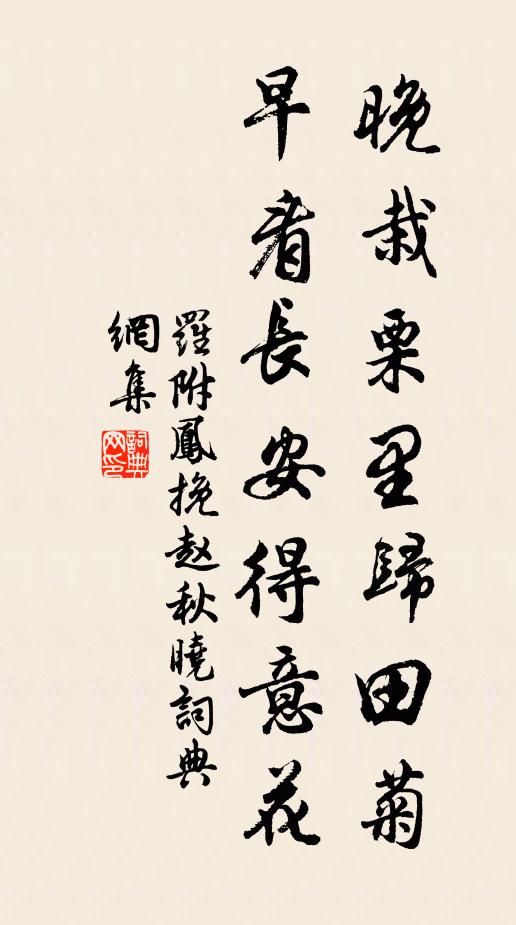 晚栽栗里歸田菊
早看長安得意花
羅附鳳挽赵秋曉詞典
網集
詞典網印